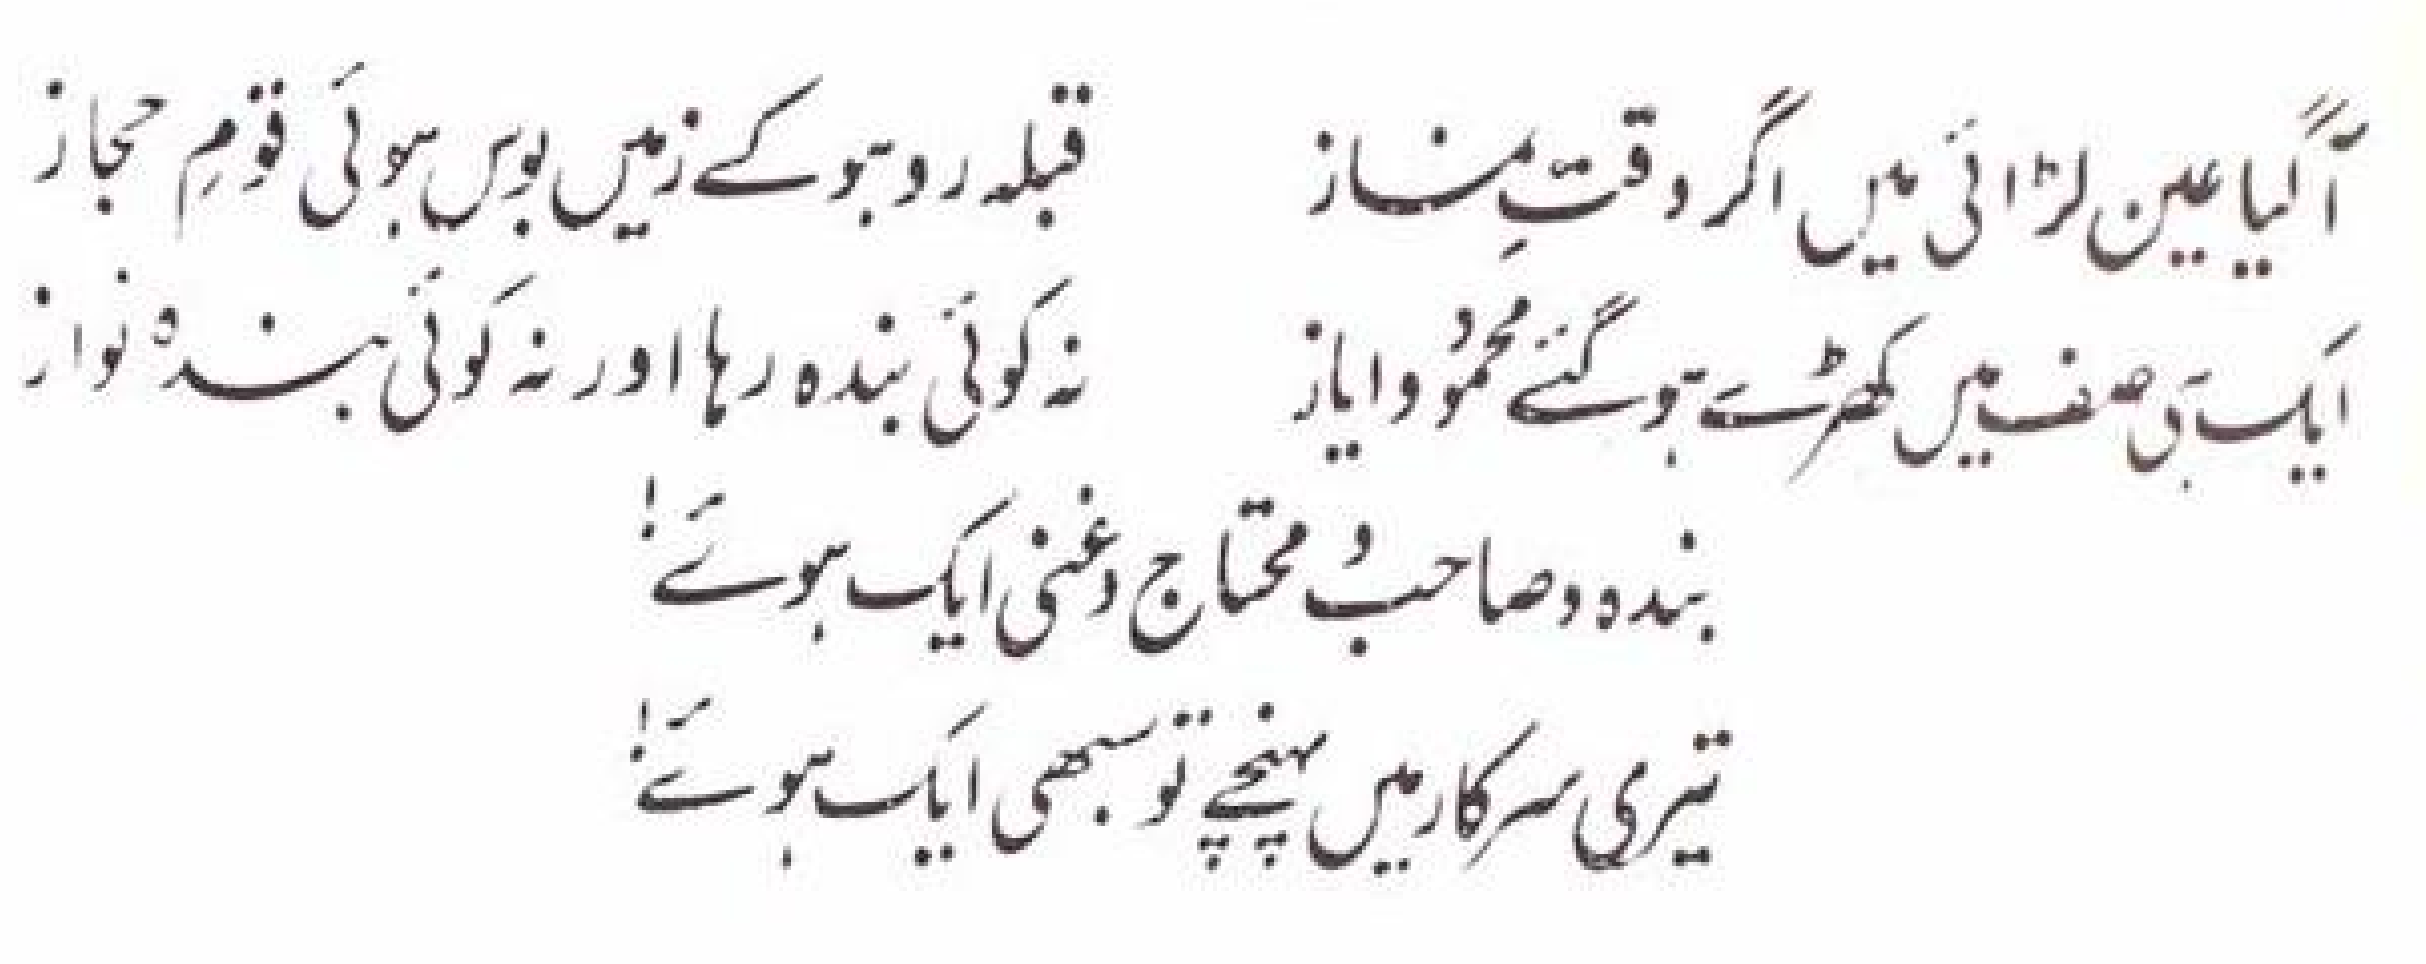 آگیا عین لڑائی میں اگر وقتِ نماز قبلہ رو ہو کے زمیں بوس ہوئی قومِ حجاز
ایک ہی صف میں کھڑے ہو گئے محمُود و ایاز نہ کوئی بندہ رہا اور نہ کوئی بندہ نواز
بندہ و صاحبُ و محتاج و غنی ایک ہوئے!
تیری سرکار میں پہنچے تو سبھی ایک ہوئے!